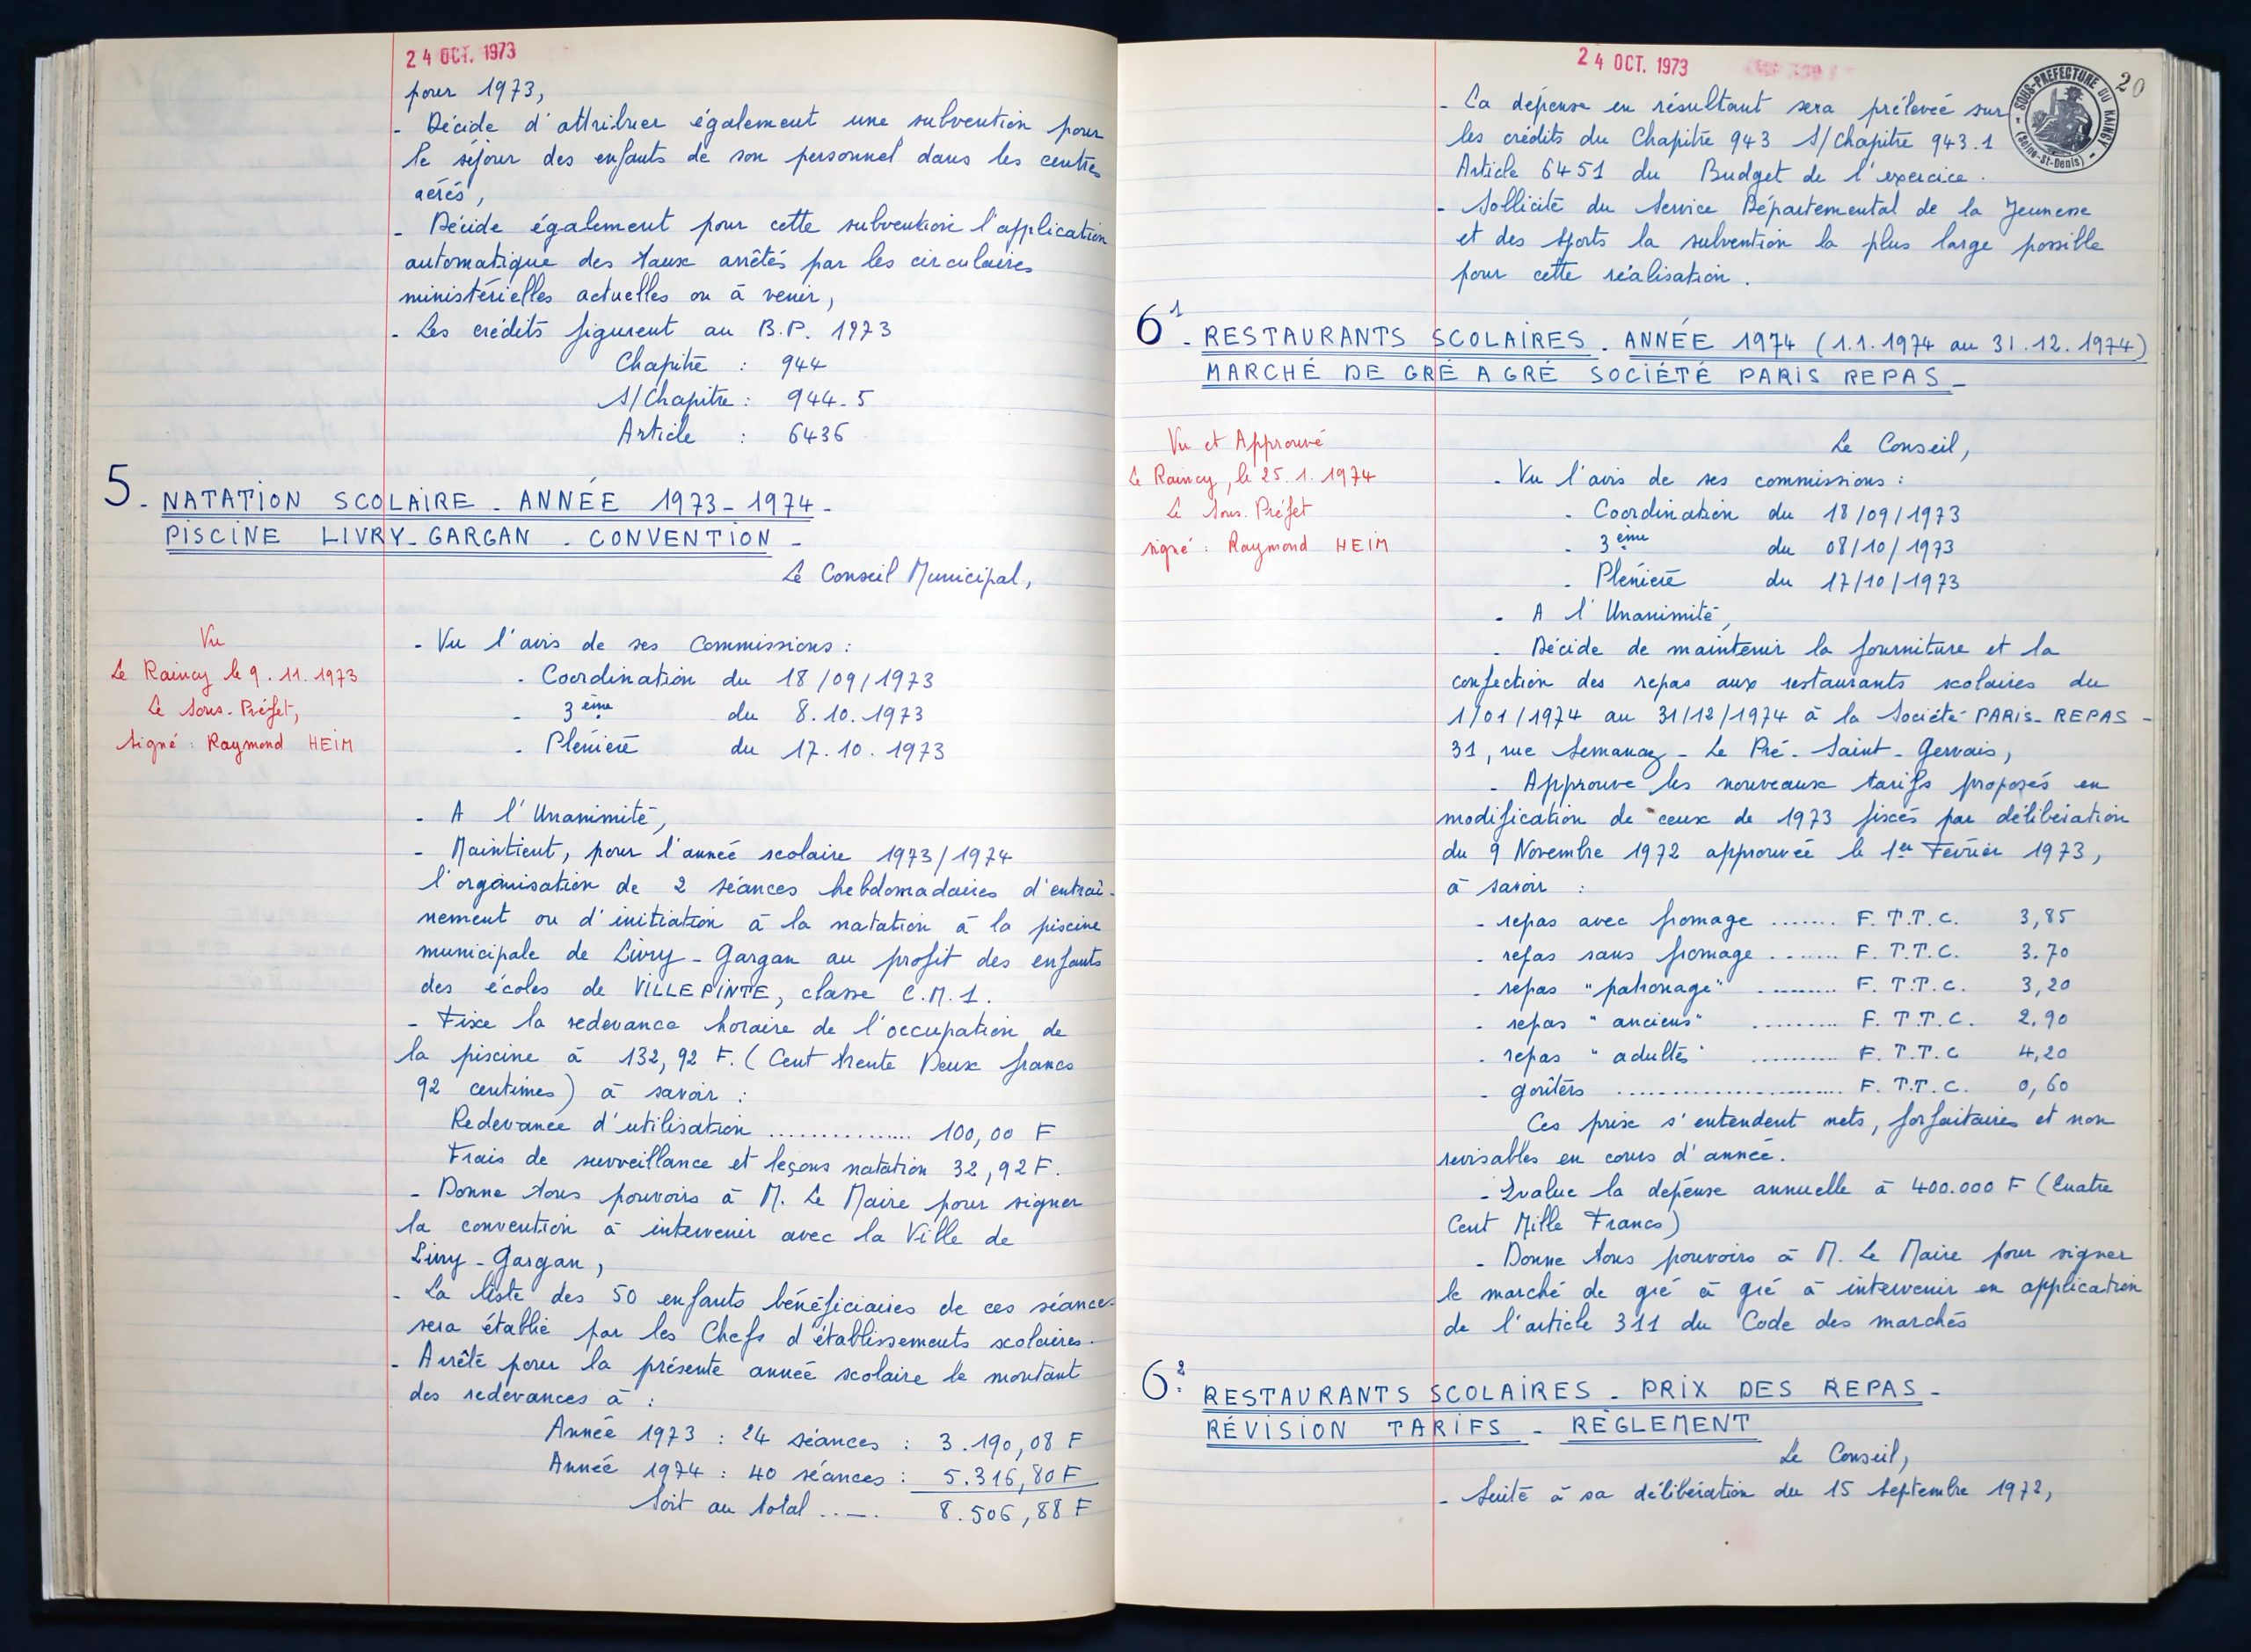 24 OCT. 1973
pour 1973,
- Décide d'attribuer également une subvention pour
le séjour des enfants de son personnel dans les centres
aérés,
- Décide également pour cette subvention l'application
automatique des taux arrêtés par les circulaires
ministérielles actuelles ou à venir,
- Les crédits figurent au B.P. 1973
Chapitre : 944
S/Chapitre : 944-5
Article : 6436
5 - NATATION SCOLAIRE - ANNÉE 1973-1974 -
PISCINE LIVRY-GARGAN - CONVENTION -
Le Conseil Municipal,
Vu
Le Raincy le 9.11.1973
Le Sous-Préfet,
Signé : Raymond HEIM
- Vu l'avis de ses Commissions :
- Coordination du 18/09/1973
- 3ème du 8.10.1973
- Plénière du 17.10.1973
- A l'Unanimité,
- Maintient, pour l'année scolaire 1973/1974
l'organisation de 2 séances hebdomadaires d'entraî-
nement ou d'initiation à la natation à la piscine
municipale de Livry-Gargan au profit des enfants
des écoles de VILLEPINTE, classe C.M.1.
- Fixe la redevance horaire de l'occupation de
la piscine à 132,92 F. (Cent trente Deux francs
92 centimes) à savoir :
Redevance d'utilisation ............... 100,00 F
Frais de surveillance et leçons natation 32,92 F.
- Donne tous pouvoirs à M. Le Maire pour signer
la convention à intervenir avec la Ville de
Livry-Gargan,
- La liste des 50 enfants bénéficiaires de ces séances
sera établie par les Chefs d'établissements scolaires.
- Arrête pour la présente année scolaire le montant
des redevances à :
Année 1973 : 24 séances : 3.190,08 F
Année 1974 : 40 séances : 5.316,80 F
Soit au total ..... 8.506,88 F
24 OCT. 1973
20
SOUS-PREFECTURE DU RAINCY
(Seine-St-Denis)
- La dépense en résultant sera prélevée sur
les crédits du Chapitre 943 S/Chapitre 943.1
Article 6451 du Budget de l'exercice.
- Sollicite du Service Départemental de la Jeunesse
et des Sports la subvention la plus large possible
pour cette réalisation.
6¹ - RESTAURANTS SCOLAIRES - ANNÉE 1974 (1.1.1974 au 31.12.1974)
MARCHÉ DE GRÉ A GRÉ SOCIÉTÉ PARIS REPAS -
Vu et Approuvé
Le Raincy, le 25.1.1974
Le Sous-Préfet
signé : Raymond HEIM
Le Conseil,
- Vu l'avis de ses commissions :
- Coordination du 18/09/1973
- 3ème du 08/10/1973
- Plénière du 17/10/1973
- A l'Unanimité,
- Décide de maintenir la fourniture et la
confection des repas aux restaurants scolaires du
1/01/1974 au 31/12/1974 à la Société PARIS-REPAS -
31, rue Semanaz - Le Pré-Saint-Gervais,
- Approuve les nouveaux tarifs proposés en
modification de ceux de 1973 fixés par délibération
du 9 Novembre 1972 approuvée le 1er Février 1973,
à savoir :
- repas avec fromage ....... F. T.T.C. 3,85
- repas sans fromage ....... F. T.T.C. 3.70
- repas "patronage" ......... F. T.T.C. 3,20
- repas "anciens" ......... F. T.T.C. 2,90
- repas "adultes" .......... F. T.T.C 4,20
- goûters ........................ F. T.T.C. 0,60
Ces prix s'entendent nets, forfaitaires et non
revisables en cours d'année.
- Evalue la dépense annuelle à 400.000 F (Quatre
Cent Mille Francs)
- Donne tous pouvoirs à M. Le Maire pour signer
le marché de gré à gré à intervenir en application
de l'article 311 du Code des marchés
6² - RESTAURANTS SCOLAIRES - PRIX DES REPAS -
RÉVISION TARIFS - RÈGLEMENT
Le Conseil,
- Suite à sa délibération du 15 Septembre 1972,